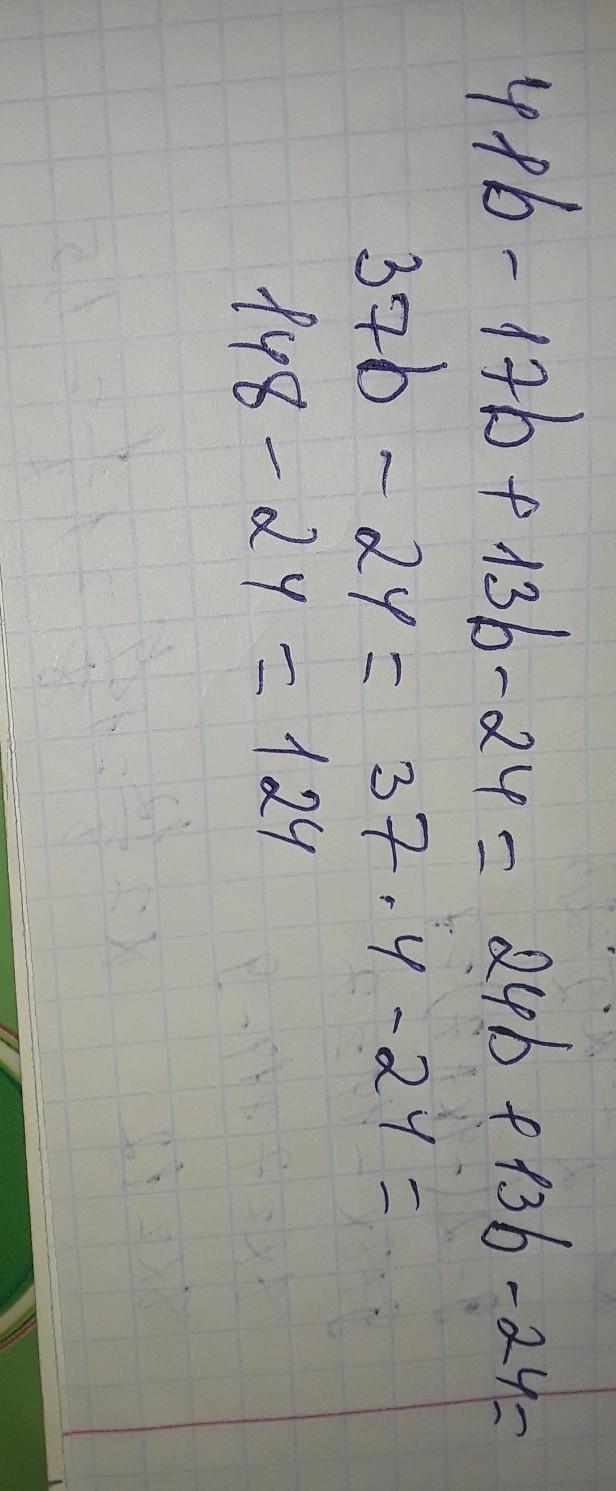 41b - 17b + 13b - 24 = 24b + 13b - 24 =
37b - 24 = 37 · 4 - 24 =
148 - 24 = 124